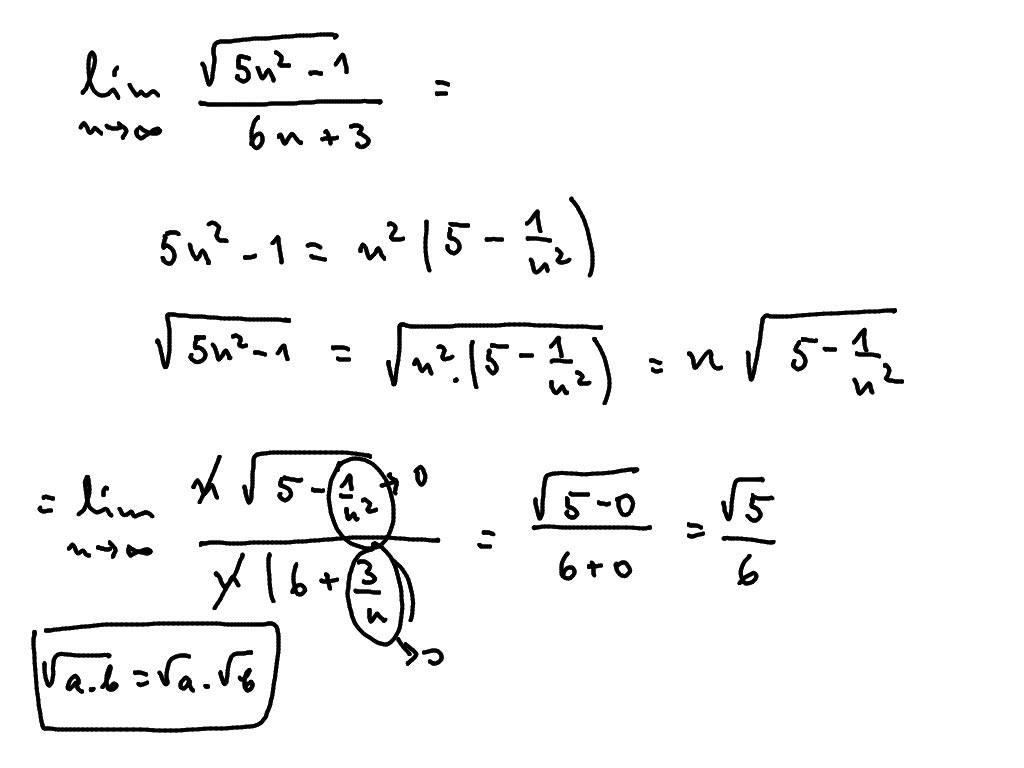 lim n→∞ √(5n² - 1) / (6n + 3) =
5n² - 1 = n² (5 - 1/n²)
√(5n² - 1) = √(n² · (5 - 1/n²)) = n √(5 - 1/n²)
= lim n→∞ n √(5 - 1/n²) → 0 / n (6 + 3/n) → 0 = √(5 - 0) / (6 + 0) = √5 / 6
√(a.b) = √a . √b